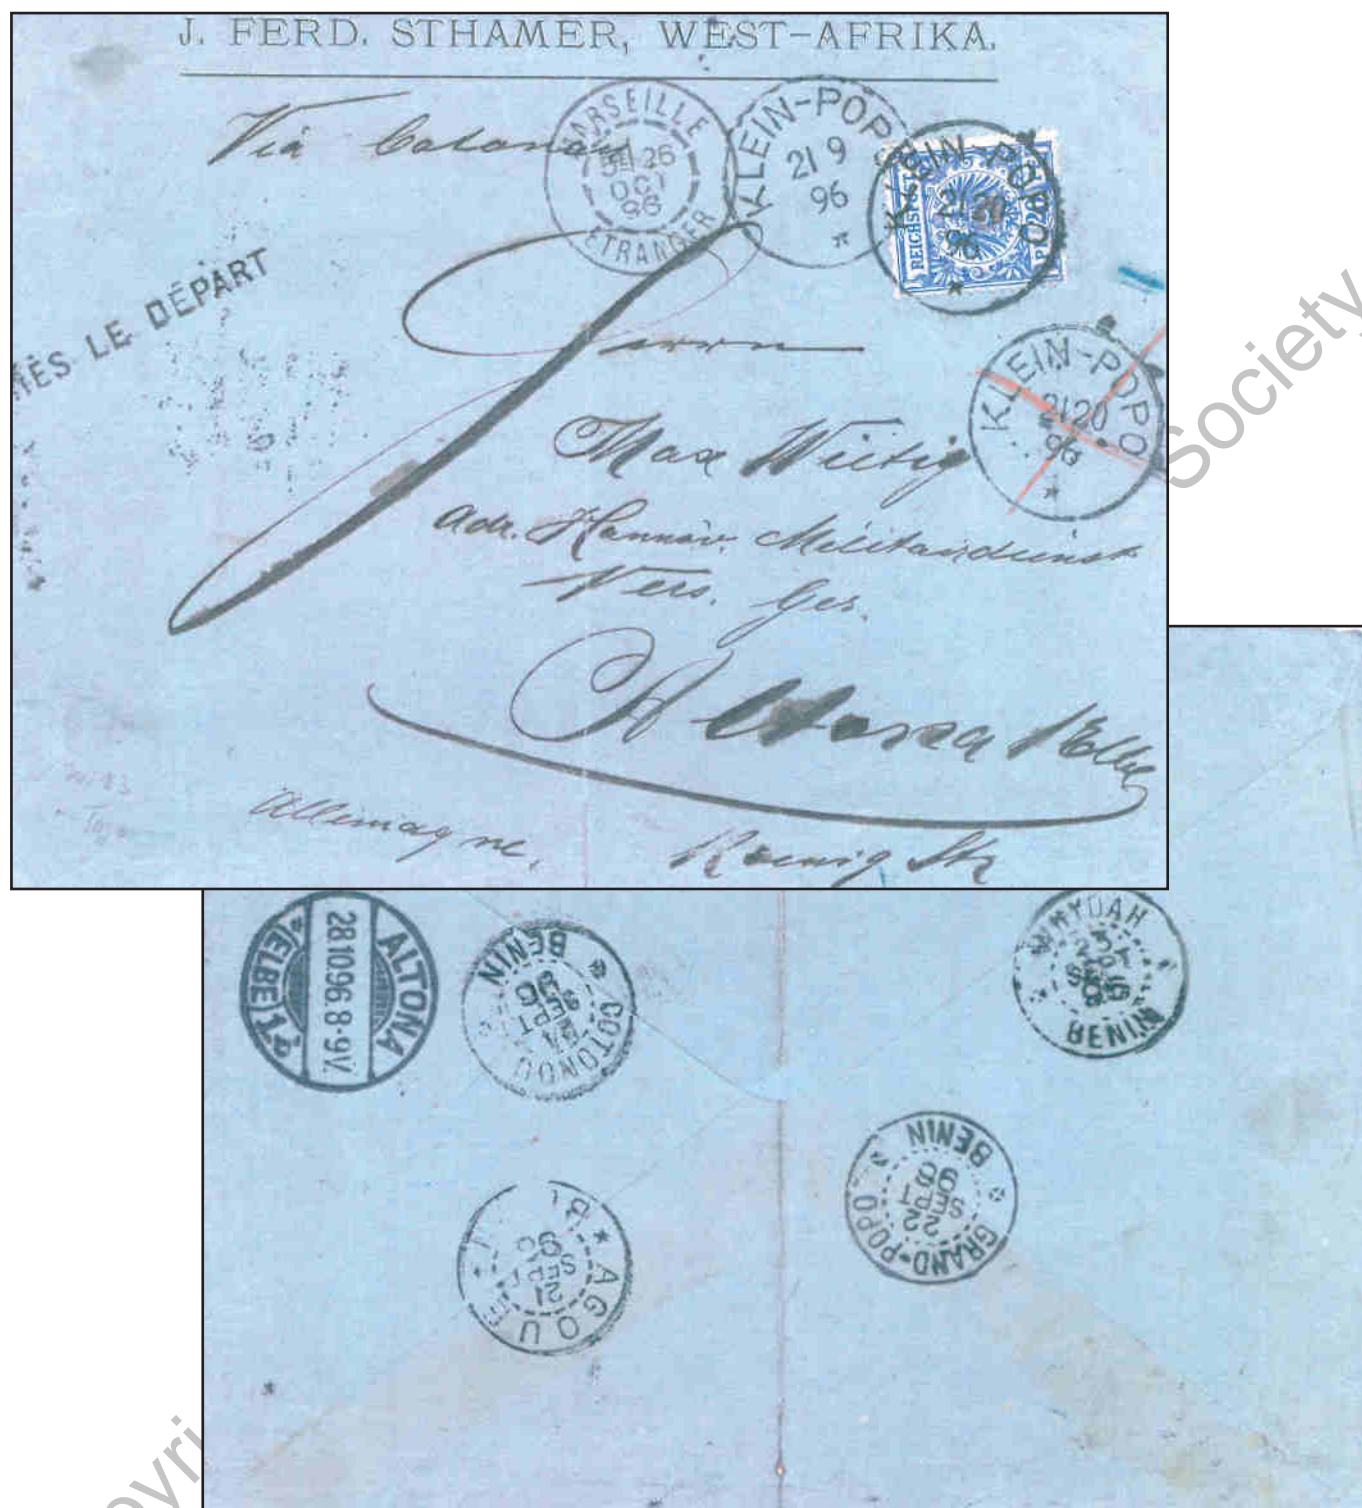 J. FERD. STHAMER, WEST-AFRIKA.
Via Cotonou
MARSEILLE
26
OCT
96
ETRANGER
KLEIN-POPO
21 9
96
KLEIN-POPO
96
REICHSPOST
20
LE DÉPART
Herrn
KLEIN-POPO
96
Max Wittig
adr. Hannov. Militairdienst
Vers. Ges.
Altona /Elbe
Allemagne.
Koenig Str
Society
ALTONA
28.10.96.8-9V.
*(ELBE)1*
COTONOU
24
SEPT
96
BENIN
WHYDAH
BENIN
GRAND-POPO
22
SEPT
96
BENIN
AGOUE
21
SEPT
96